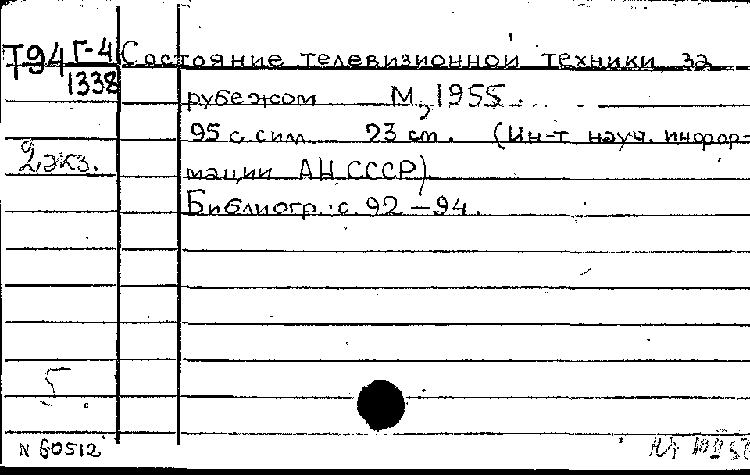 Т94 Г-4 Состояние телевизионной техники за
1338
рубежом М, 1955.
95 с. с илл. 23 см. (Ин-т науч. инфор-
2 экз.
мации АН СССР)
Библиогр. с. 92-94.
5.
N 60512